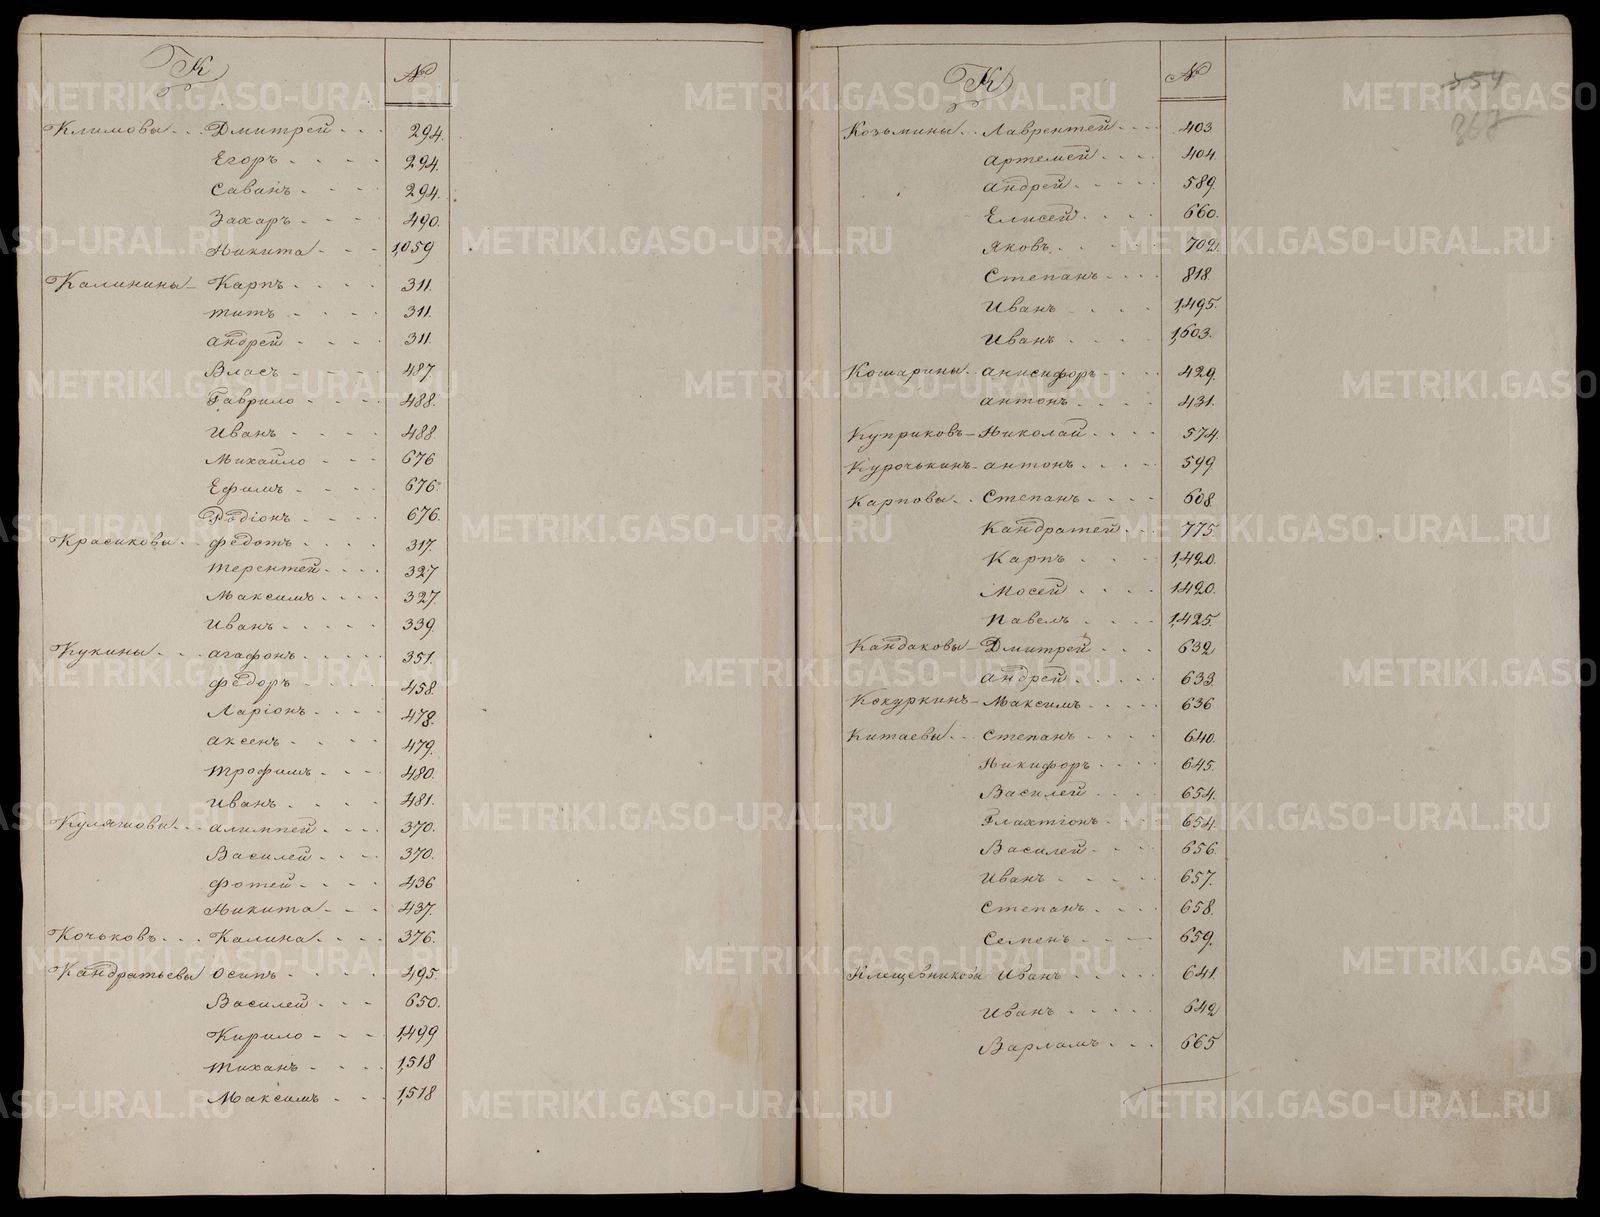 К №
Климовы Дмитрей 294.
Егоръ 294.
Саванъ 294.
Захаръ 490.
Никита 1,059
Калинины Карпъ 311.
Титъ 311.
Андрей 311.
Власъ 487.
Гаврило 488.
Иванъ 488.
Михайло 676
Ефимъ 676.
Родіонъ 676.
Красиковы Федотъ 317.
Терентей 327
Максимъ 327.
Иванъ 339.
Кукины Агафонъ 351.
Федоръ 458.
Ларіонъ 478.
Аксенъ 479.
Трофимъ 480.
Иванъ 481.
Куляшовы Алимпей 370.
Василей 370.
Фотей 436
Никита 437.
Кочьковъ Калина 376.
Кандратьевы Осипъ 495.
Василей 650.
Кирило 1,499
Тиханъ 1,518
Максимъ 1,518
К №
354
367
Козьмины Лаврентей 403
Артемей 404.
Андрей 589.
Елисей 660.
Яковъ 702.
Степанъ 818.
Иванъ 1,495.
Иванъ 1,603.
Кошарины Анисифоръ 429.
Антонъ 431.
Куприковъ Николай 574.
Курочькинъ Антонъ 599
Карповы Степанъ 608.
Кандратей 775.
Карпъ 1,420.
Мосей 1420.
Павелъ 1,425.
Кандаковы Дмитрей 632
Андрей 633.
Кокуркинъ Максимъ 636
Китаевы Степанъ 640.
Никифоръ 645.
Василей 654.
Глахтіонъ 654.
Василей 656.
Иванъ 657.
Степанъ 658.
Семенъ 659.
Клещевниковы Иванъ 641.
Иванъ 642
Варламъ 665
METRIKI.GASO-URAL.RU